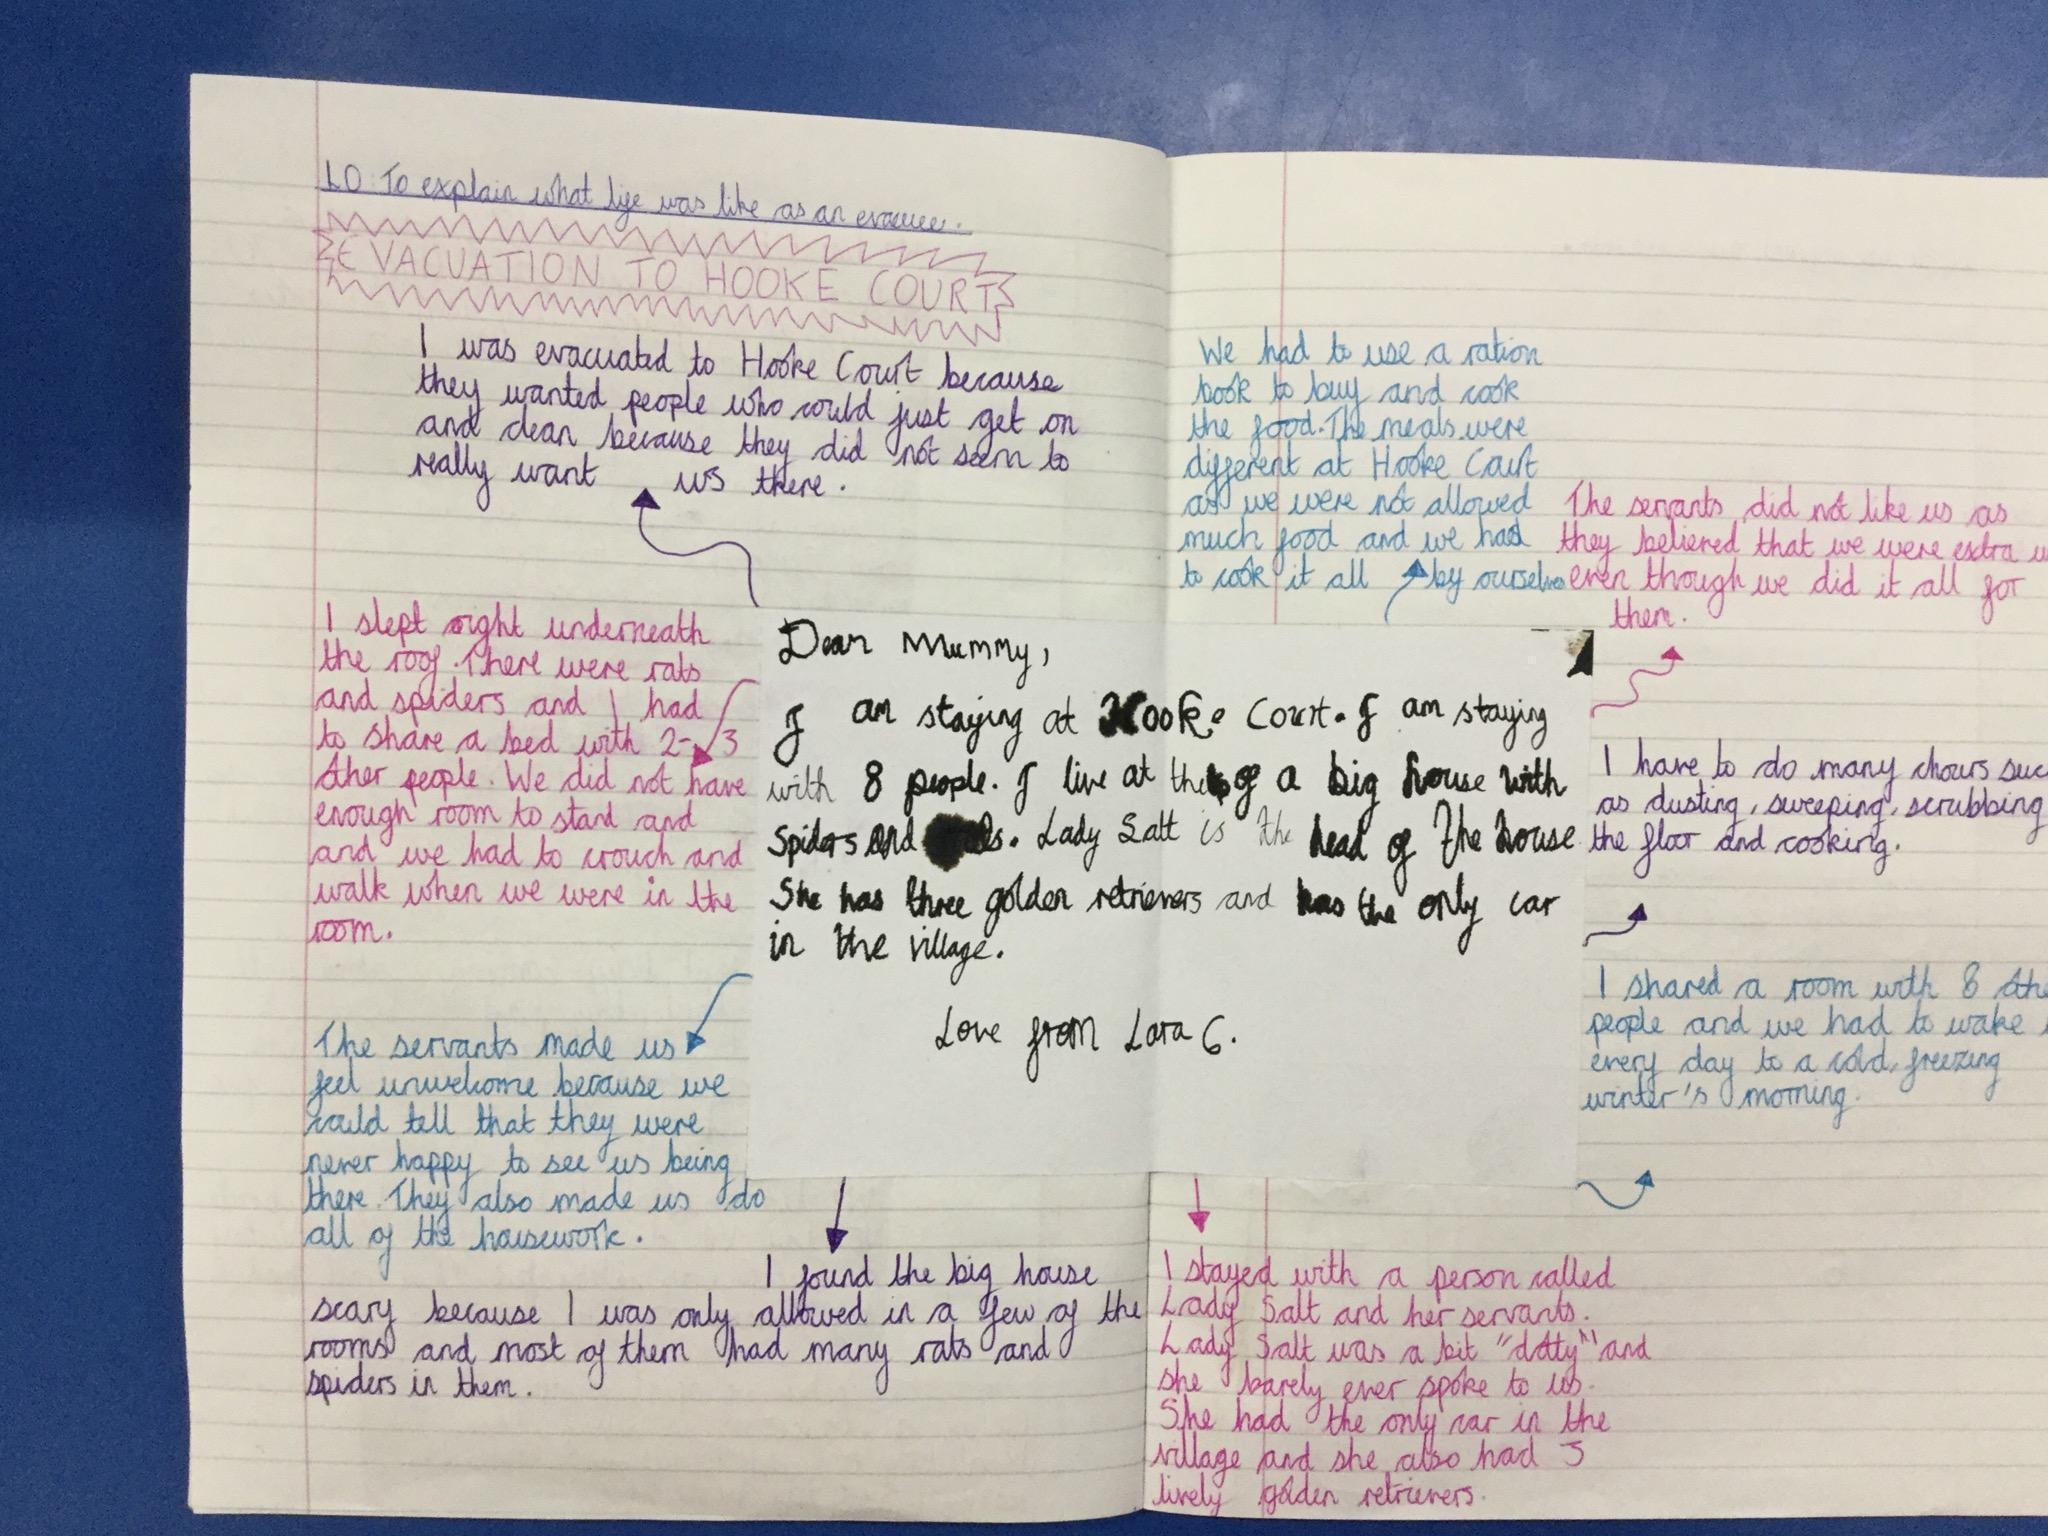 LO: To explain what life was like as an evacuee.
EVACUATION TO HOOKE COURT
I was evacuated to Hooke Court because
they wanted people who could just get on
and clean because they did not seem to
really want us there.
I slept right underneath
the roof. There were rats
and spiders and I had
to share a bed with 2-3
other people. We did not have
enough room to stand and
and we had to crouch and
walk when we were in the
room.
The servants made us
feel unwelcome because we
could tell that they were
never happy to see us being
there. They also made us do
all of the housework.
I found the big house
scary because I was only allowed in a few of the
rooms and most of them had many rats and
spiders in them.
Dear Mummy,
I am staying at Hooke Court. I am staying
with 8 people. I live at the of a big house with
spiders and Lady Salt is the head of the house
She has three golden retrievers and has the only car
in the village.
Love from Lara C.
We had to use a ration
book to buy and cook
the food. The meals were
different at Hooke Court
as we were not allowed
much food and we had
to cook it all by ourselves
The servants did not like us as
they believed that we were extra
even though we did it all for
them.
I have to do many chours
as dusting, sweeping, scrubbing
the floor and cooking.
I shared a room with 8
people and we had to wake
every day to a cold, freezing
winter's morning.
I stayed with a person called
Lady Salt and her servants.
Lady Salt was a bit "dotty" and
she barely ever spoke to us.
She had the only car in the
village and she also had 3
lively golden retrievers.